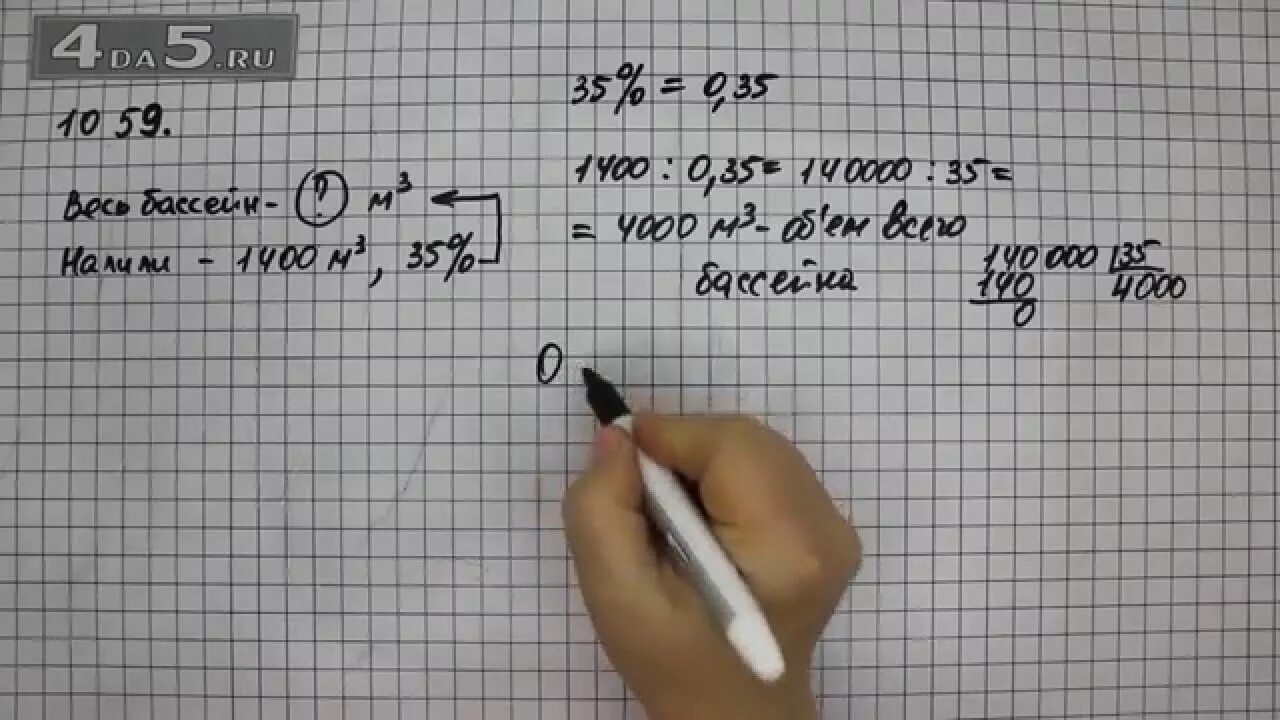 4DA5.RU
1059.
Весь бассейн - ? м³
Налили - 1400 м³, 35%
35% = 0,35
1400 : 0,35 = 140000 : 35 =
= 4000 м³ - об'ем всего
бассейна
140 000 35
140 4000
0
О